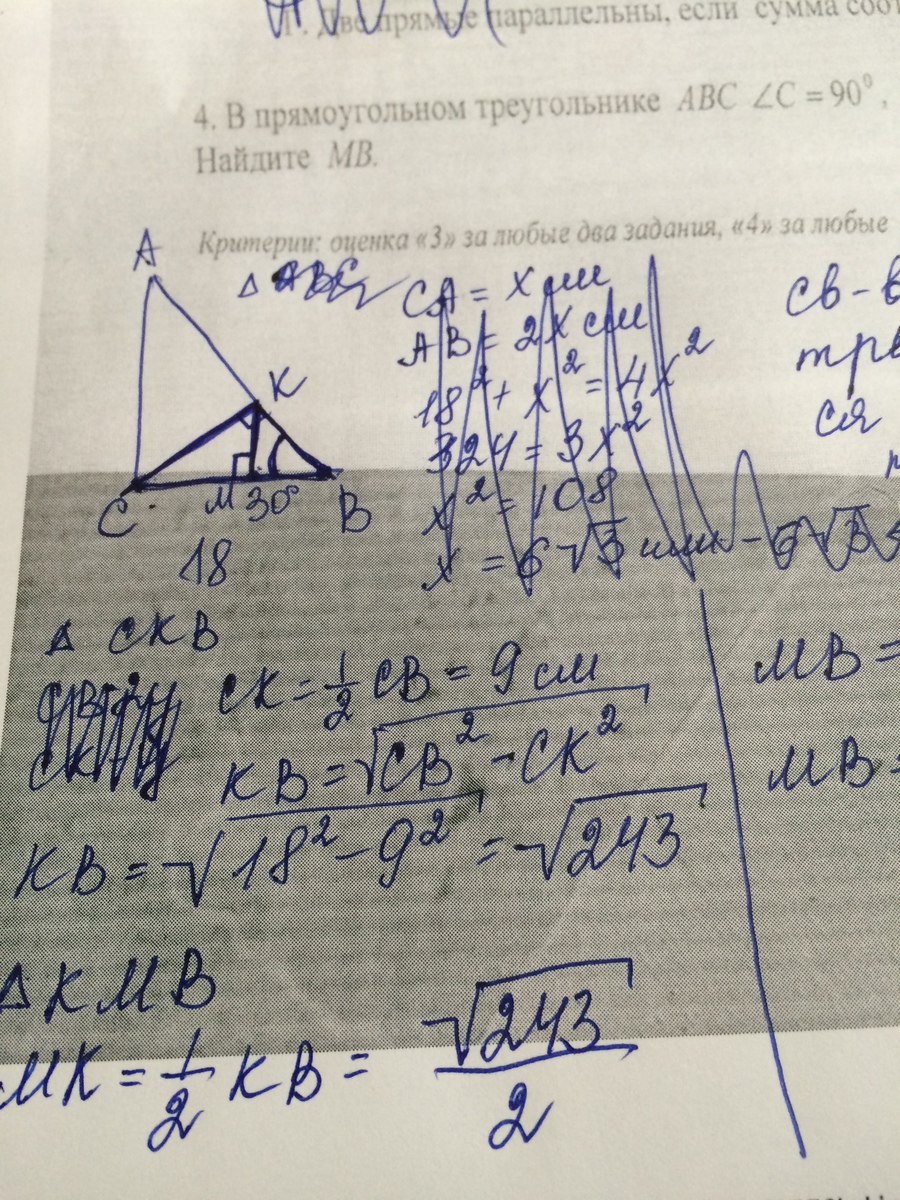 1. Две прямые параллельны, если сумма соот
4. В прямоугольном треугольнике ABC ∠C = 90⁰,
Найдите MB.
Критерии: оценка «3» за любые два задания, «4» за любые
A
K
C
M
30°
B
18
Δ ABC
CA = x см
AB = 2x см
18² + x² = 4x²
324 = 3x²
x² = 108
x = 6√3 или - 6√3
св-в
ся
Δ CKB
CK = 1/2 CB = 9 см
KB = √CB² - CK²
KB = √18² - 9² = √243
Δ KMB
MK = 1/2 KB = √243/2
MB =
MB =